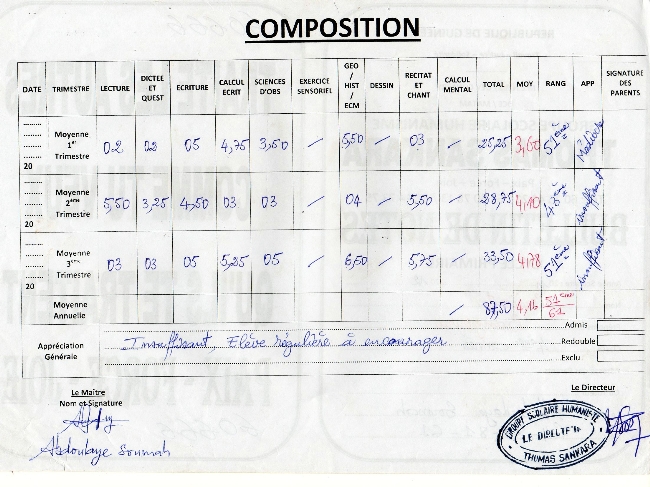 COMPOSITION
DATE TRIMESTRE LECTURE DICTEE ET QUEST ECRITURE CALCUL ECRIT SCIENCES D'OBS EXERCICE SENSORIEL GEO / HIST / ECM DESSIN RECITAT ET CHANT CALCUL MENTAL TOTAL MOY RANG APP SIGNATURE DES PARENTS
20 Moyenne 1er Trimestre 02 02 05 4,75 3,50 / 5,50 / 03 / 25,25 3,60 51ème Médiocre
20 Moyenne 2ème Trimestre 5,50 3,25 4,50 03 03 / 04 / 5,50 / 28,75 4,10 48ème insuffisant
20 Moyenne 3ème Trimestre 03 03 05 5,25 05 / 6,50 / 5,75 / 33,50 4,78 51ème insuffisant
Moyenne Annuelle / 87,50 4,16 51ème/61
Admis
Appréciation Générale Insuffisant, Elève régulière à encourager
Redouble
Exclu
Le Maître
Nom et Signature
Abdoulaye Soumah
Le Directeur
GROUPE SCOLAIRE HUMANITE
LE DIRECTEUR
THOMAS SANKARA